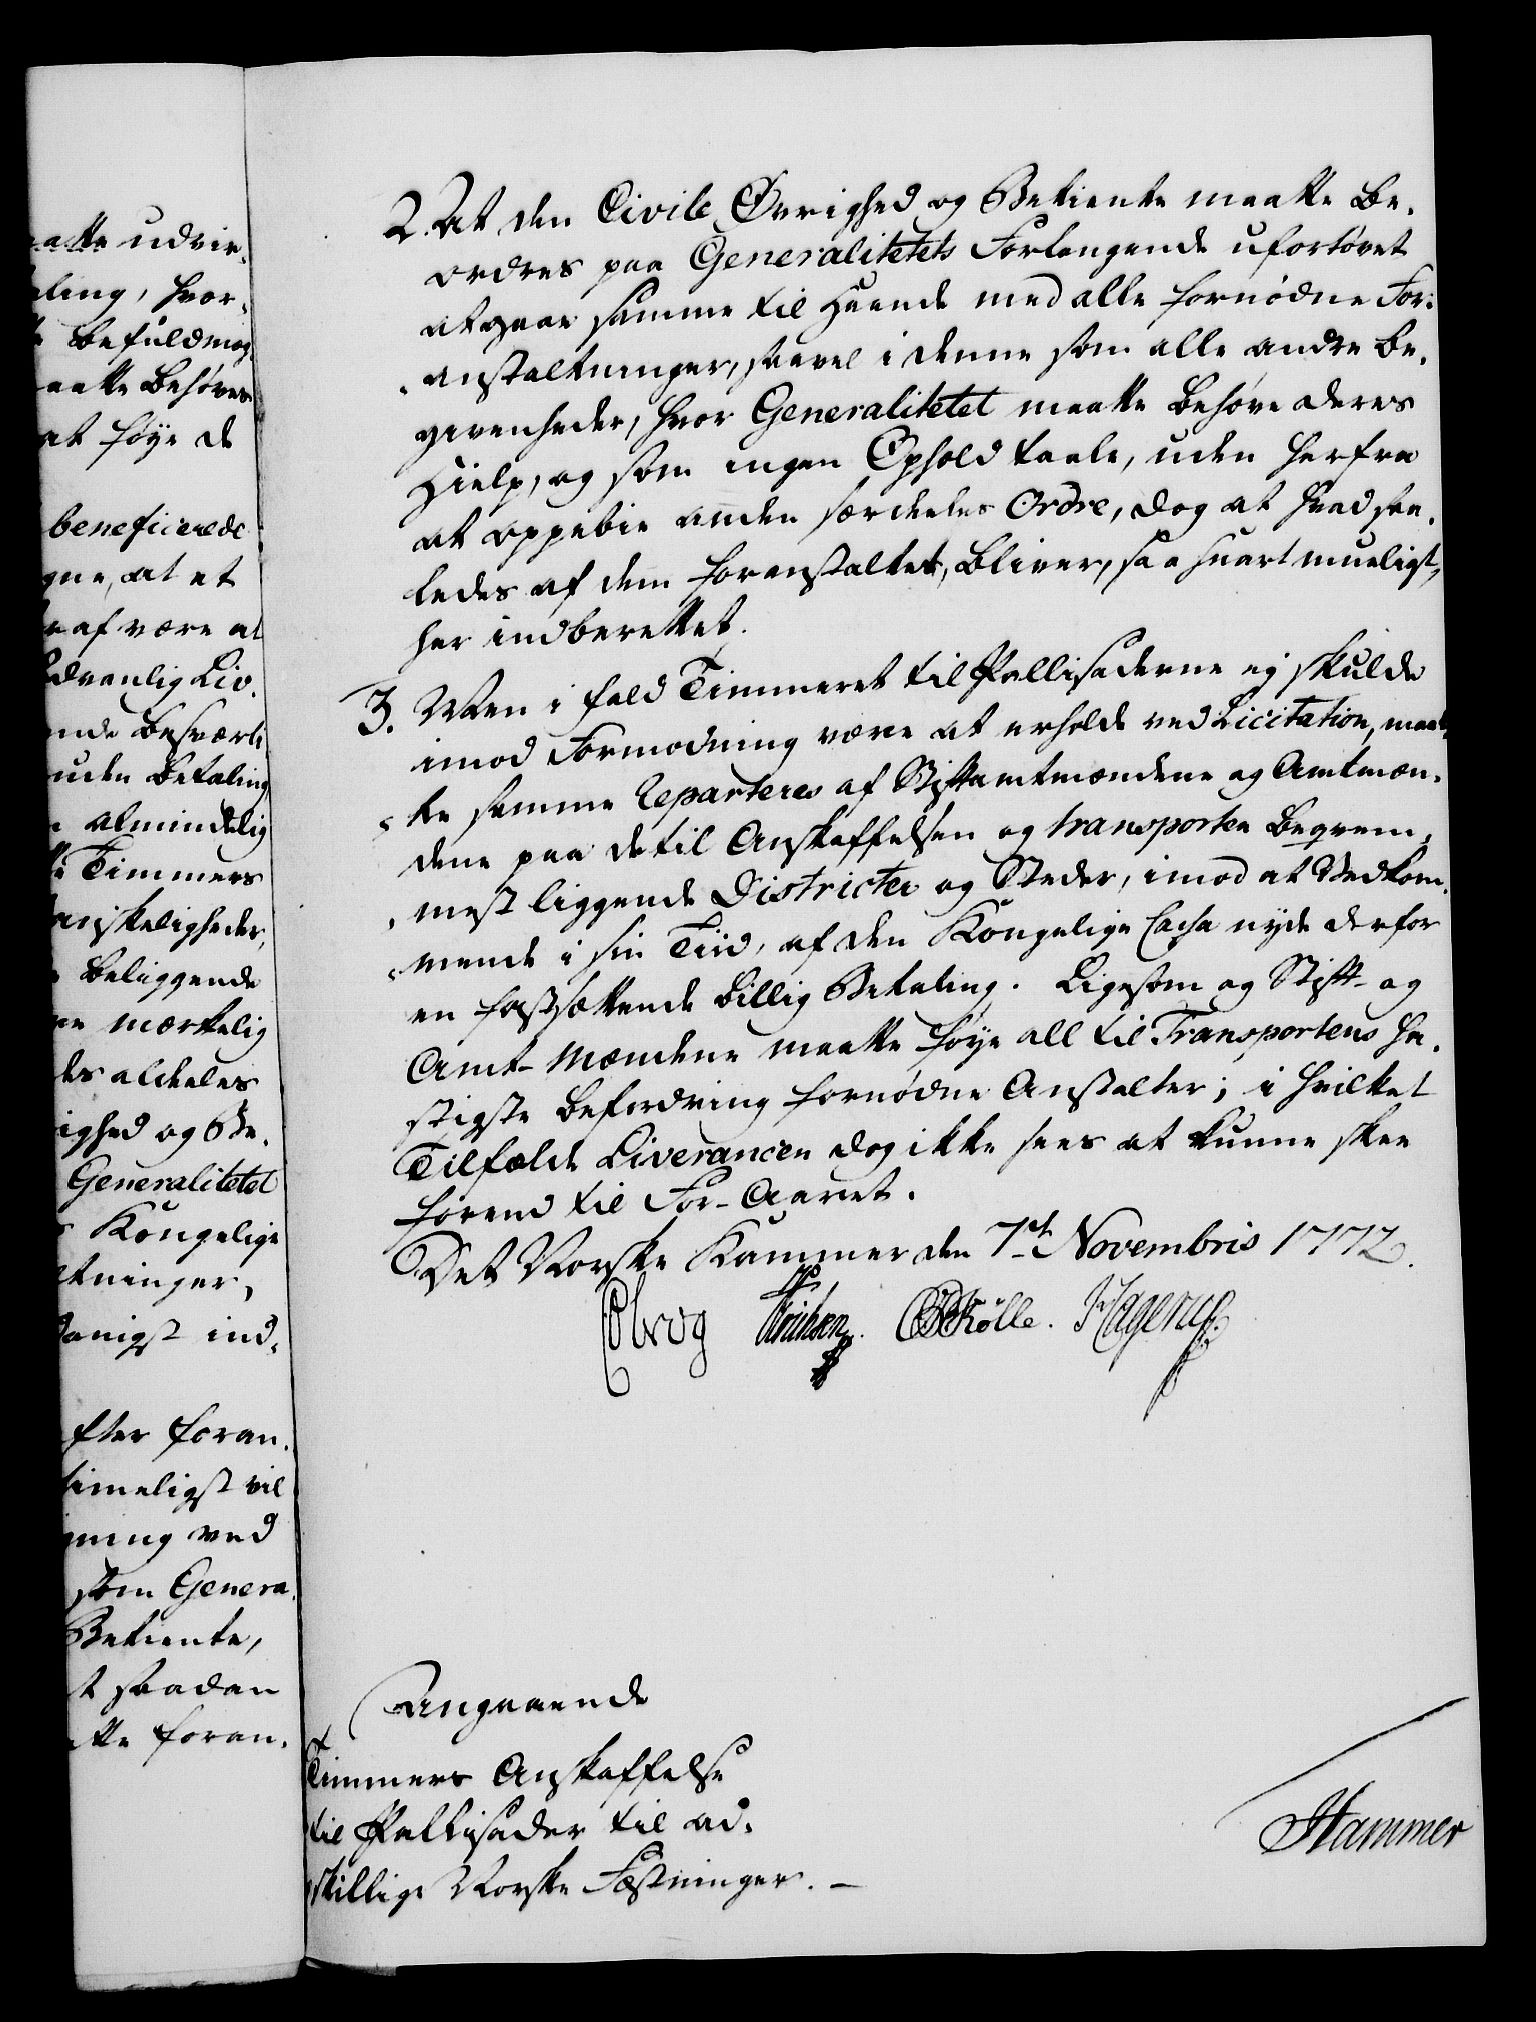 atte udvir-
ling, hvor-
befuldmæg
aatte behøves
at føye de
beneficerede
gne, at et
af være at
ædvanlig Liv.
ende besværli
uden betaling
almindelig
Timmers
anskeligheder,
beliggende
mærkelig
des aldeles
righed og Be-
Generalitetet
Kongelige
tninger,
danigst ind-
fter foran-
timeligst vil
gning ved
som Genera
Betiente,
t saadan
tte foran-
2. At den Civile Øvrighed og Betiente maatte be-
ordres paa Generalitetets Forlangende ufortøvet
at gaae samme til Haande med alle fornødne For-
anstaltninger, saavel i denne som alle andre be-
givenheder, hvor Generalitetet maatte behøve deres
Hielp, og som ingen Ophold taale, uden herfra
at oppebie anden særdeles Ordre, dog at hvad saa-
ledes af dem foranstaltet, bliver, saa snart mueligt,
her indberettet.
3. Men i fald Timmeret til Pallisaderne ej skulde
imod Formodning være at erholde ved Licitation, maat-
te samme reparteres af Stiftamtmændene og Amtmæn-
dene paa de til Anskaffelsen og transporten beqvem-
mest liggende Districter og Steder, imod at Vedkom-
mende i sin Tiid, af den Kongelige Cassa nyde derfor
en fastsættende billig Betaling. Ligesom og Stift- og
Amt-Mændene maatte føye all til Transportens ha-
stigste befordring fornødne Anstalter; i hvilket
Tilfælde Liverancen dog ikke sees at kunne skee
førend til For-Aaret.
Det Norske Kammer den 7de Novembris 1772.
Erichsen. Kølle. Hagerup.
Angaaende
Timmers Anskaffelse
til Pallisader til ad-
skillige Norske Fæstninger. —
Hammer